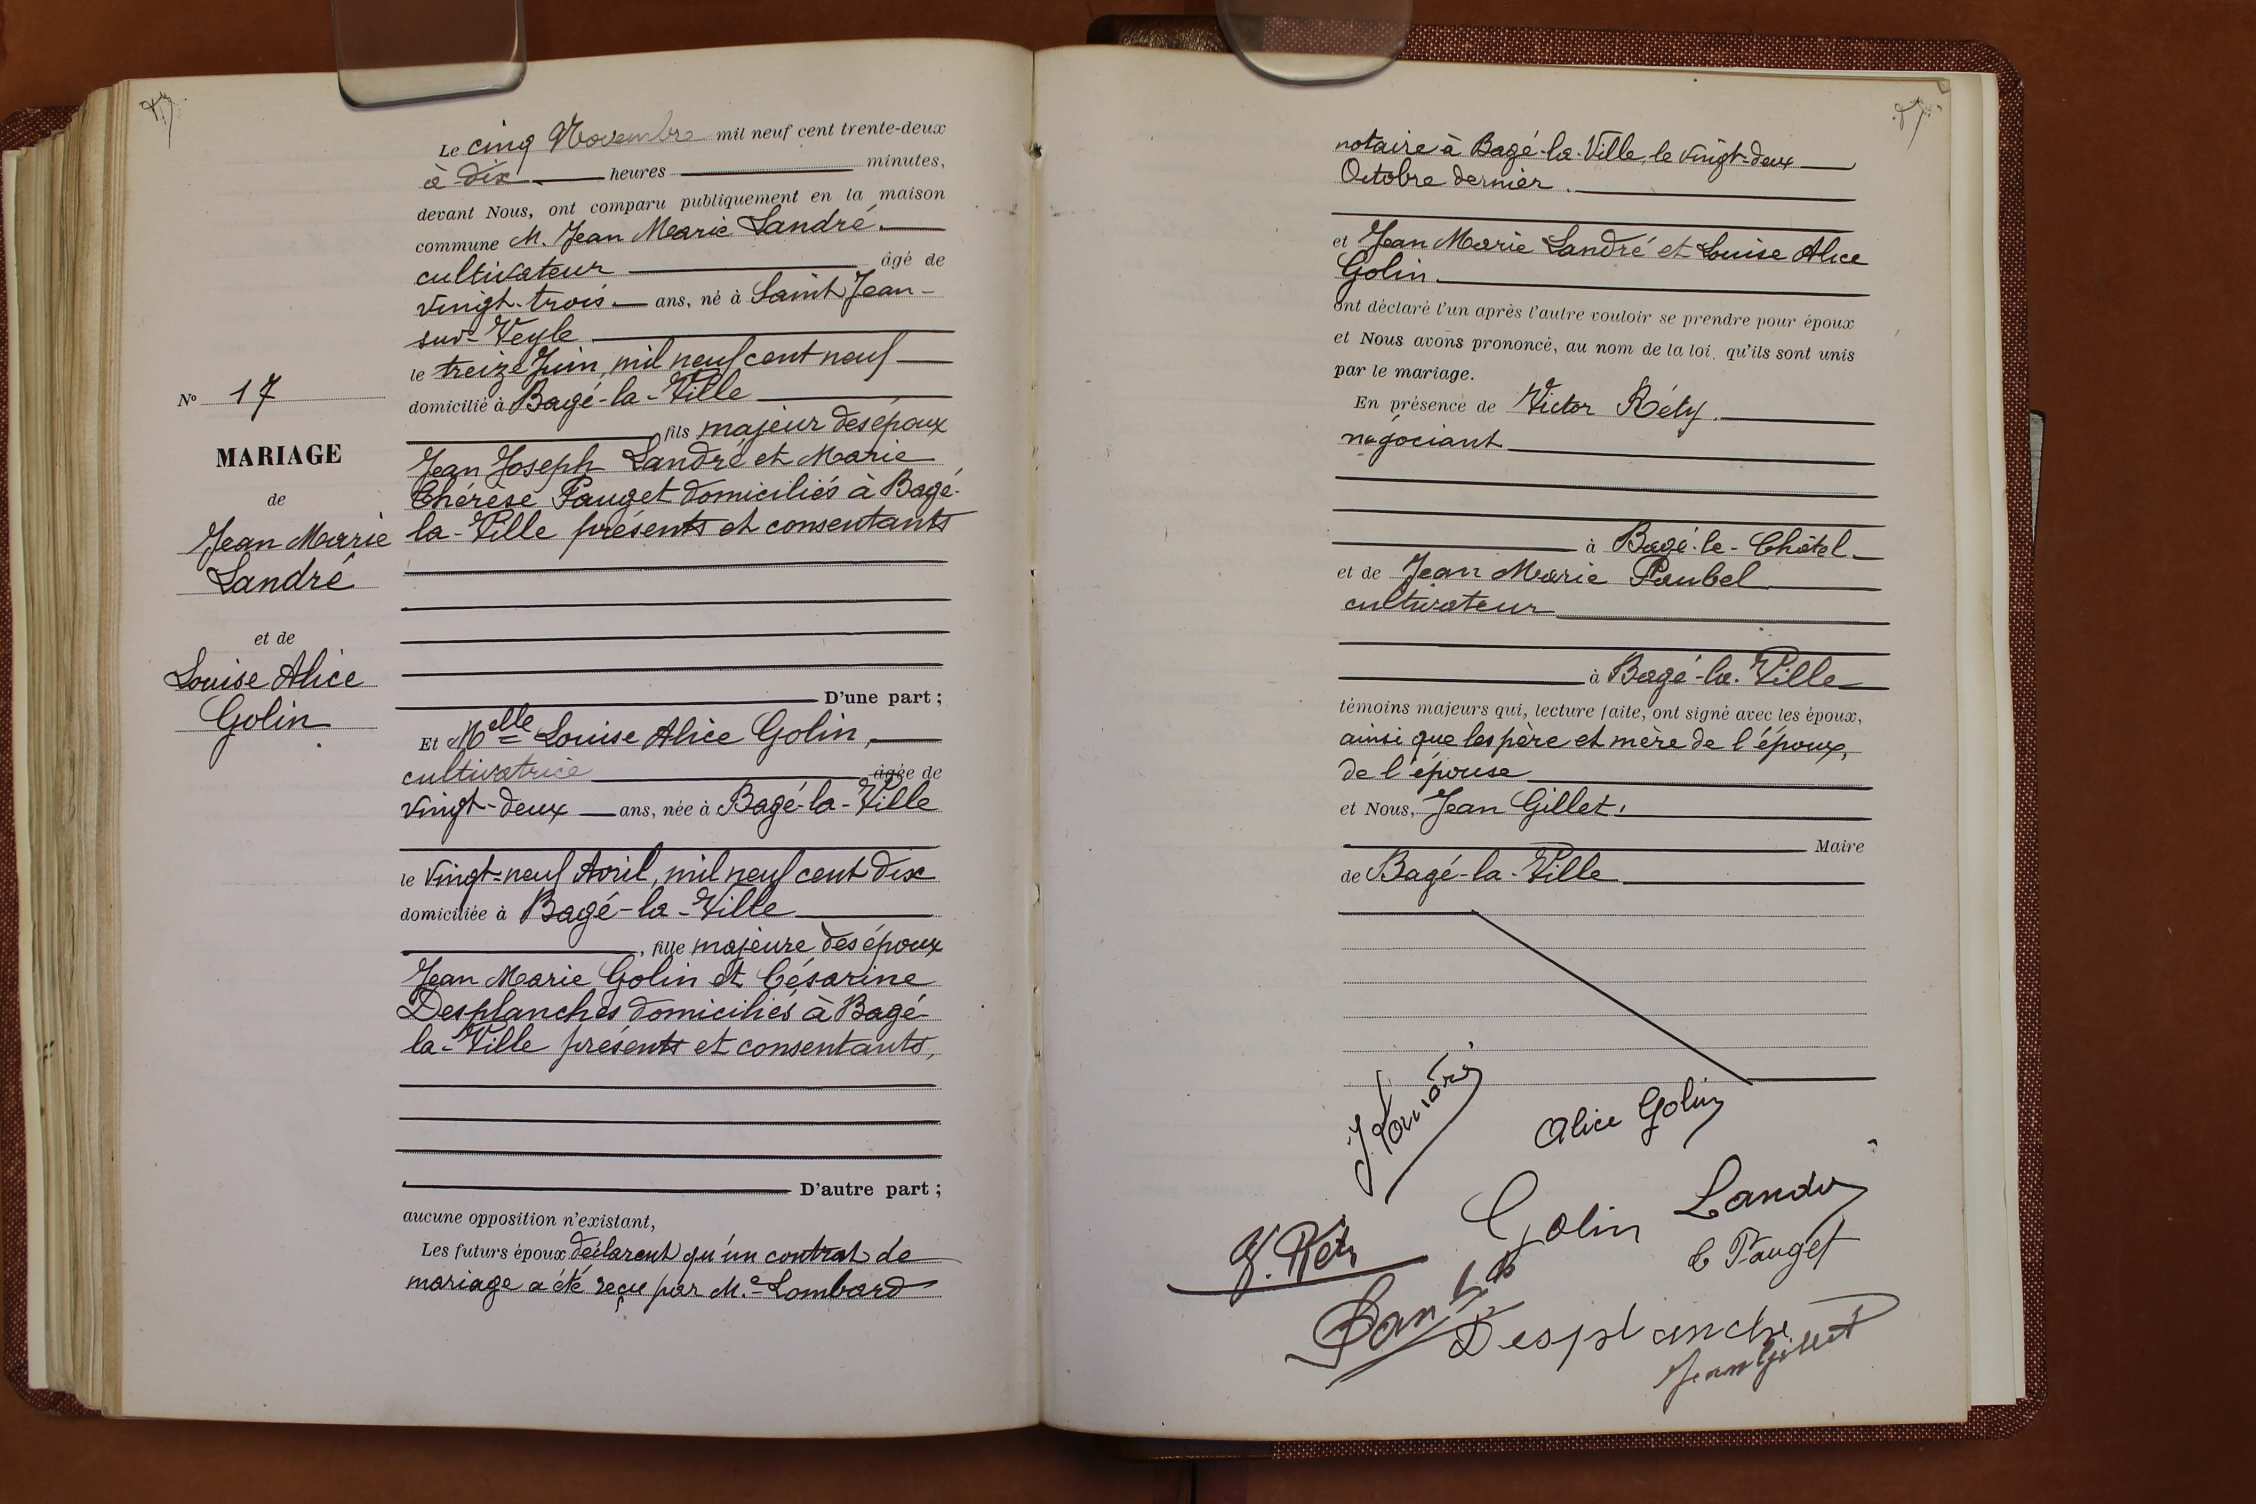 Le cinq Novembre mil neuf cent trente-deux
à dix heures minutes,
devant Nous, ont comparu publiquement en la maison
commune M. Jean Marie Landré.
cultivateur âgé de
vingt-trois ans, né à Saint Jean-
sur-Veyle
le treize Juin, mil neuf cent neuf
domicilié à Bagé-la-Ville
fils majeur des époux
Jean Joseph Landré et Marie
Thérèse Pauget domiciliés à Bagé-
la-Ville présents et consentants
D'une part ;
N° 17
MARIAGE
de
Jean Marie
Landré
et de
Louise Alice
Golin
Et Melle Louise Alice Golin,
cultivatrice âgée de
vingt-deux ans, née à Bagé-la-Ville
le vingt-neuf Avril, mil neuf cent dix
domiciliée à Bagé-la-Ville
, fille majeure des époux
Jean Marie Golin et Césarine
Desplanches domiciliés à Bagé-
la-Ville présents et consentants,
D'autre part ;
aucune opposition n'existant,
Les futurs époux déclarent qu'un contrat de
mariage a été reçu par Me Lombard
notaire à Bagé-la-Ville, le vingt-deux
Octobre dernier.
et Jean Marie Landré et Louise Alice
Golin
ont déclaré l'un après l'autre vouloir se prendre pour époux
et Nous avons prononcé, au nom de la loi, qu'ils sont unis
par le mariage.
En présence de Victor Réty.
négociant
à Bagé-le-Châtel
et de Jean Marie Paubel
cultivateur
à Bagé-la-Ville
témoins majeurs qui, lecture faite, ont signé avec les époux,
ainsi que les père et mère de l'époux,
de l'épouse
et Nous, Jean Gillet,
Maire
de Bagé-la-Ville
Alice Golin
Golin
Landré
Pauget
Desplanche
Jean Gillet